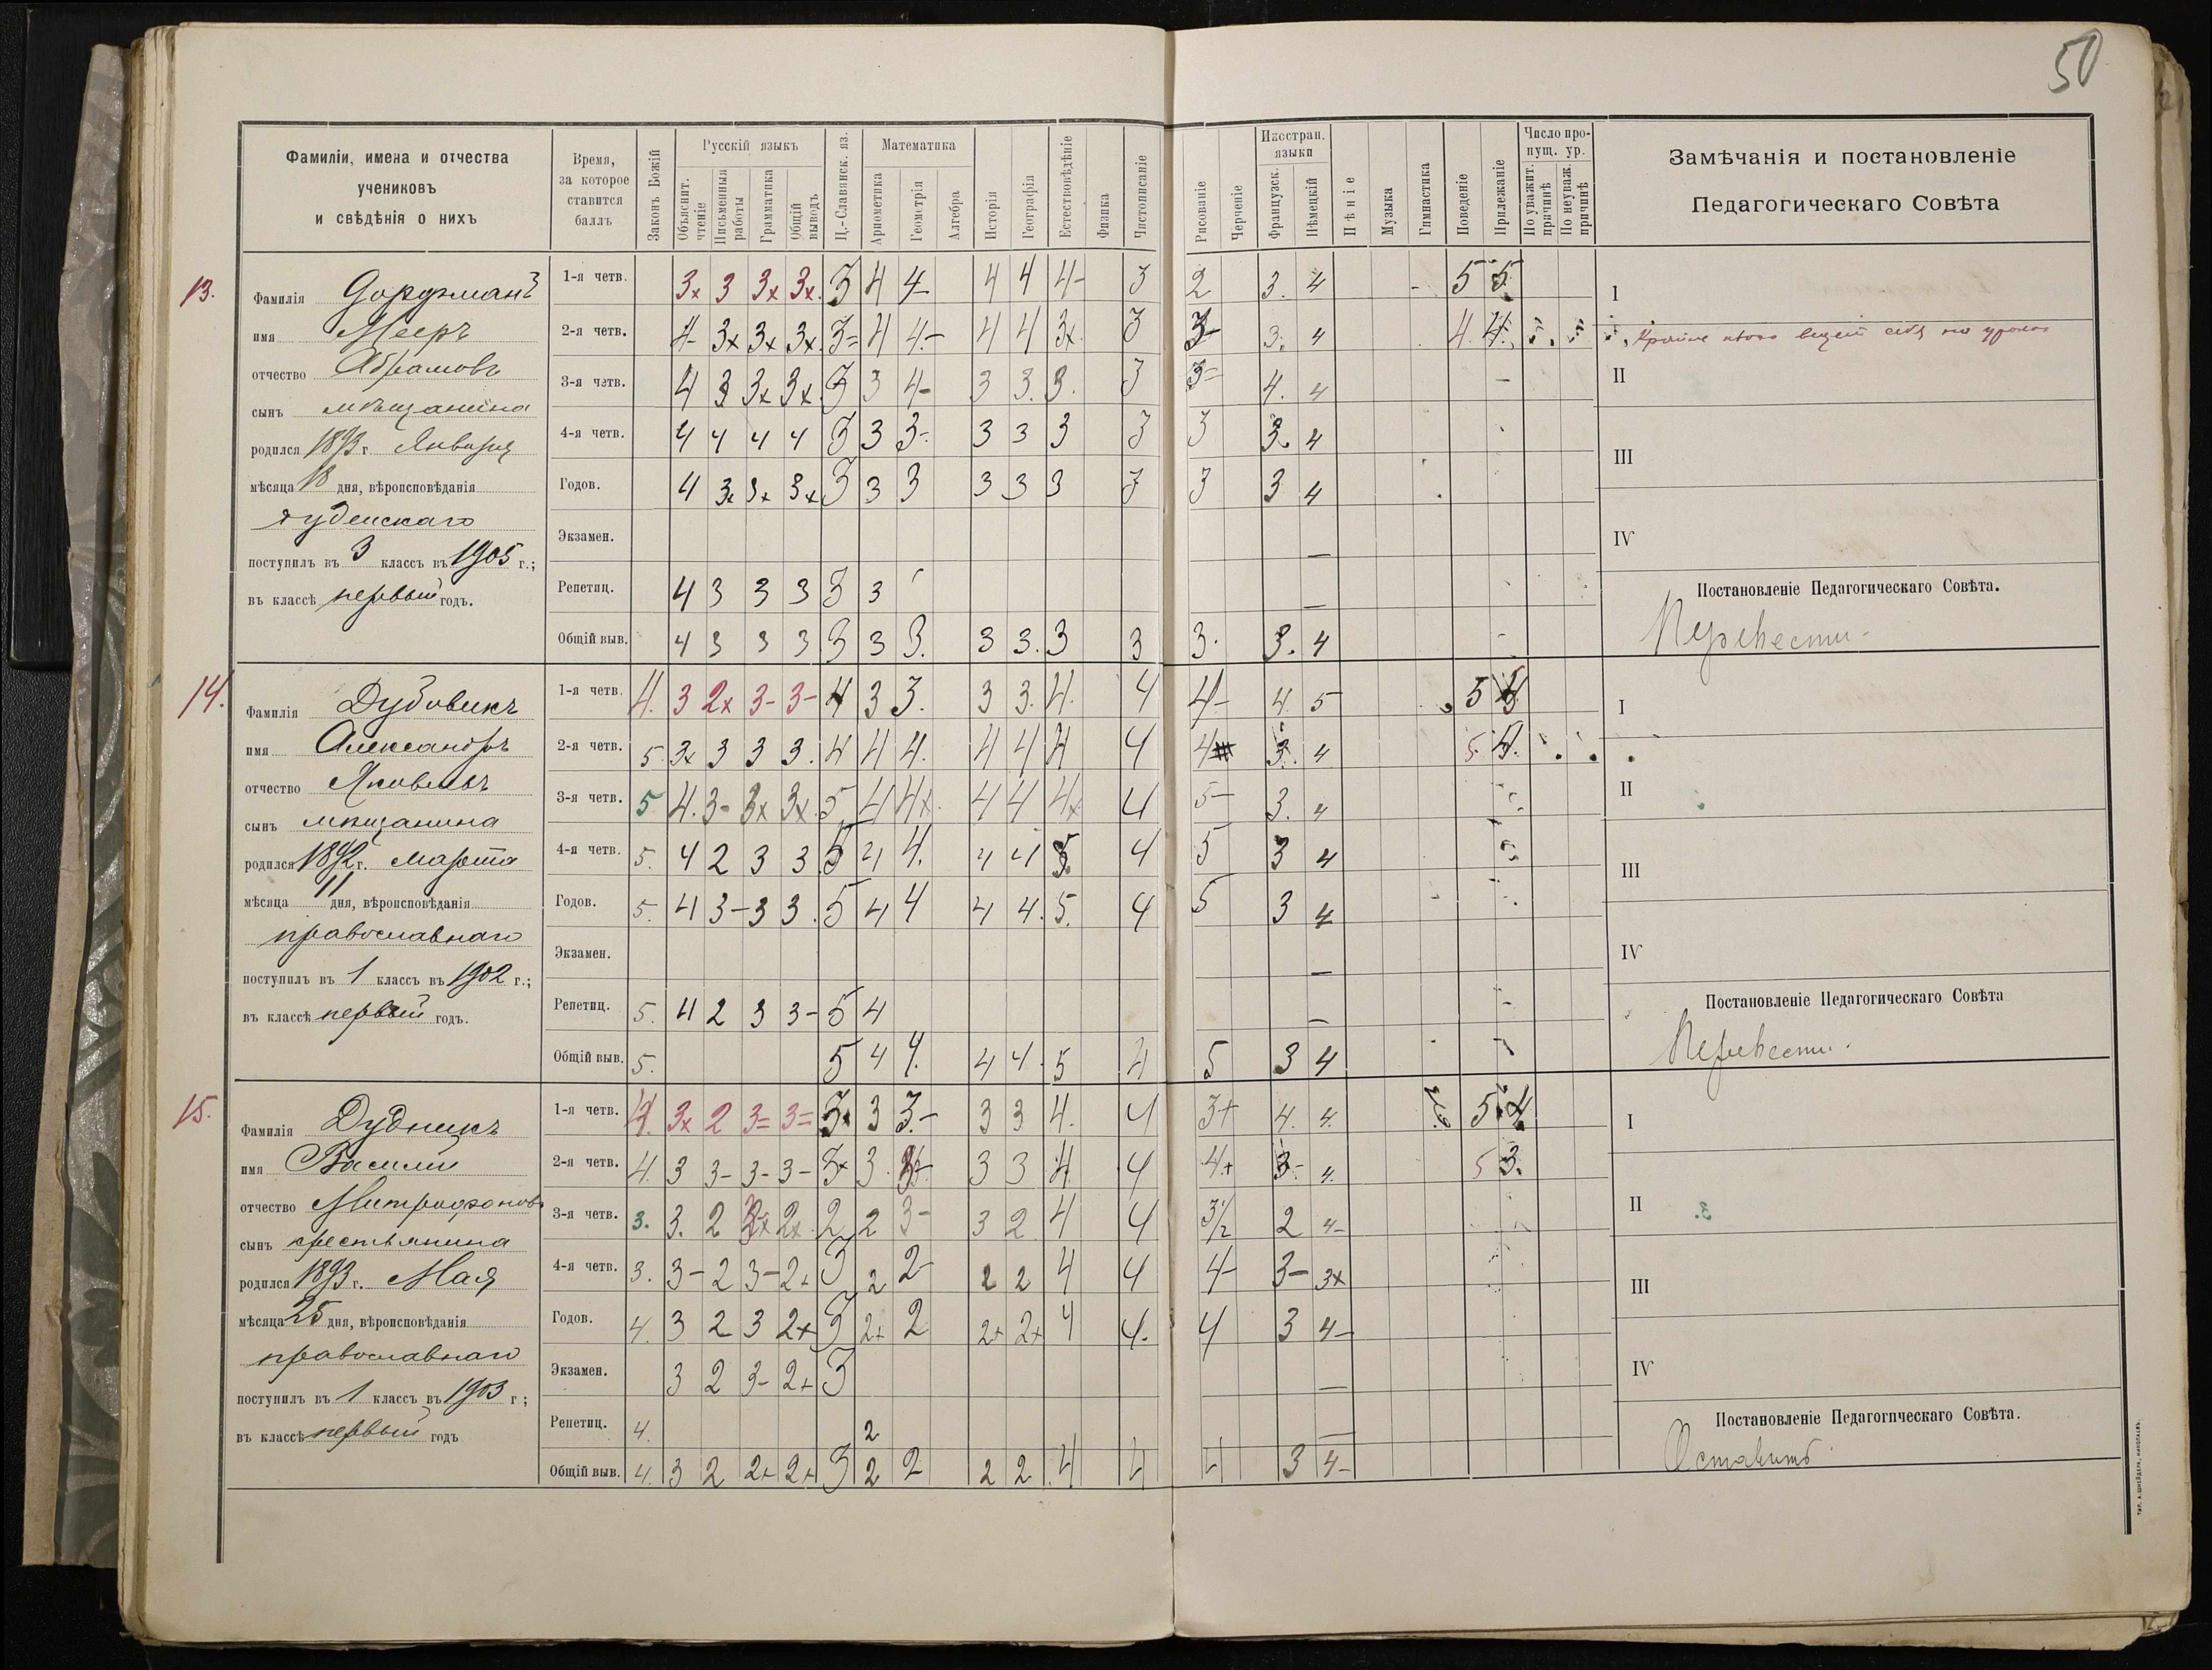 50
Фамиліи, имена и отчества
учениковъ
и свѣдѣнія о нихъ
Время,
за которое
ставится
баллъ
Законъ Божій
Русскій языкъ
Объяснит. чтеніе
Письменныя работы
Грамматика
Общій выводъ
Ц.-Славянск. яз.
Математика
Ариѳметика
Геометрія
Алгебра
Исторія
Географія
Естествовѣдѣніе
Физика
Чистописаніе
Рисованіе
Черченіе
Иностран. языки
Французск.
Нѣмецкій
Пѣніе
Музыка
Гимнастика
Поведеніе
Прилежаніе
Число пропущ. ур.
По уважит. причинѣ
По неуваж. причинѣ
Замѣчанія и постановленіе
Педагогическаго Совѣта
13.
Фамилія Дорфманъ
имя Мееръ
отчество Абрамовъ
сынъ мѣщанина
родился 1893 г. Января
мѣсяца 18 дня, вѣроисповѣданія
іудейскаго
поступилъ въ 3 классъ въ 1905 г.;
въ классѣ первый годъ.
1-я четв. 3× 3 3× 3× 3 4 4- 4 4 4- 3 2 3. 4 5 5
2-я четв. 4- 3× 3× 3× 3= 4 4- 4 4 3× 3 3- 3. 4 4. 4
3-я четв. 4 3 3× 3× 3 3 4- 3 3. 3. 3 3= 4. 4
4-я четв. 4 4 4 4 3 3 3- 3 3 3 3 3 3. 4
Годов. 4 3× 3× 3× 3 3 3 3 3 3 3 3 3 4
Экзамен.
Репетиц. 4 3 3 3 3 3
Общій выв. 4 3 3 3 3 3 3. 3 3. 3 3 3. 3. 4
I
себя на
II
III
IV
Постановленіе Педагогическаго Совѣта.
Перевести.
14.
Фамилія Дубовикъ
имя Александръ
отчество Яковлевъ
сынъ мѣщанина
родился 1892 г. Марта
мѣсяца 11 дня, вѣроисповѣданія
православнаго
поступилъ въ 1 классъ въ 1902 г.;
въ классѣ первый годъ.
1-я четв. 4. 3 2× 3- 3- 4 3 3. 3 3. 4. 4 4- 4. 5 5
2-я четв. 5 3× 3 3 3. 4 4 4. 4 4 4 4 4 3. 4 5. 4.
3-я четв. 5 4. 3- 3× 3× 5 4 4× 4 4 4× 4 5- 3. 4
4-я четв. 5. 4 2 3 3 5 4 4. 4 4 5. 4 5 3 4
Годов. 5. 4 3- 3 3. 5 4 4 4 4. 5. 4 5 3 4
Экзамен.
Репетиц. 5. 4 2 3 3- 5 4
Общій выв. 5. 5 4 4. 4 4. 5 4 5 3 4
I
II
III
IV
Постановленіе Педагогическаго Совѣта
Перевести.
15.
Фамилія Дудникъ
имя Василій
отчество Митрофановъ
сынъ крестьянина
родился 1893 г. Мая
мѣсяца 25 дня, вѣроисповѣданія
православнаго
поступилъ въ 1 классъ въ 1903 г;
въ классѣ первый годъ
1-я четв. 4. 3× 2 3= 3= 3× 3 3.- 3 3 4. 4 3+ 4. 4. 5
2-я четв. 4. 3 3- 3- 3- 3+ 3. 3 3 4 4 4.+ 3- 4. 5 3.
3-я четв. 3. 3. 2 2× 2× 2 2 3- 3 2 4 4 3½ 2 4-
4-я четв. 3. 3- 2 3- 2+ 3 2 2- 2 2 4 4 4- 3- 3×
Годов. 4. 3 2 3 2+ 3 2+ 2 2+ 2+ 4 4. 4 3 4-
Экзамен. 3 2 3- 2+ 3
Репетиц. 4. 2
Общій выв. 4. 3 2 2+ 2+ 3 2 2 2 2. 4 4 4 3 4-
I
II
III
IV
Постановленіе Педагогическаго Совѣта.
Оставить
ТИП. А. ШНЕЙДЕРА, НИКОЛАЕВЪ.